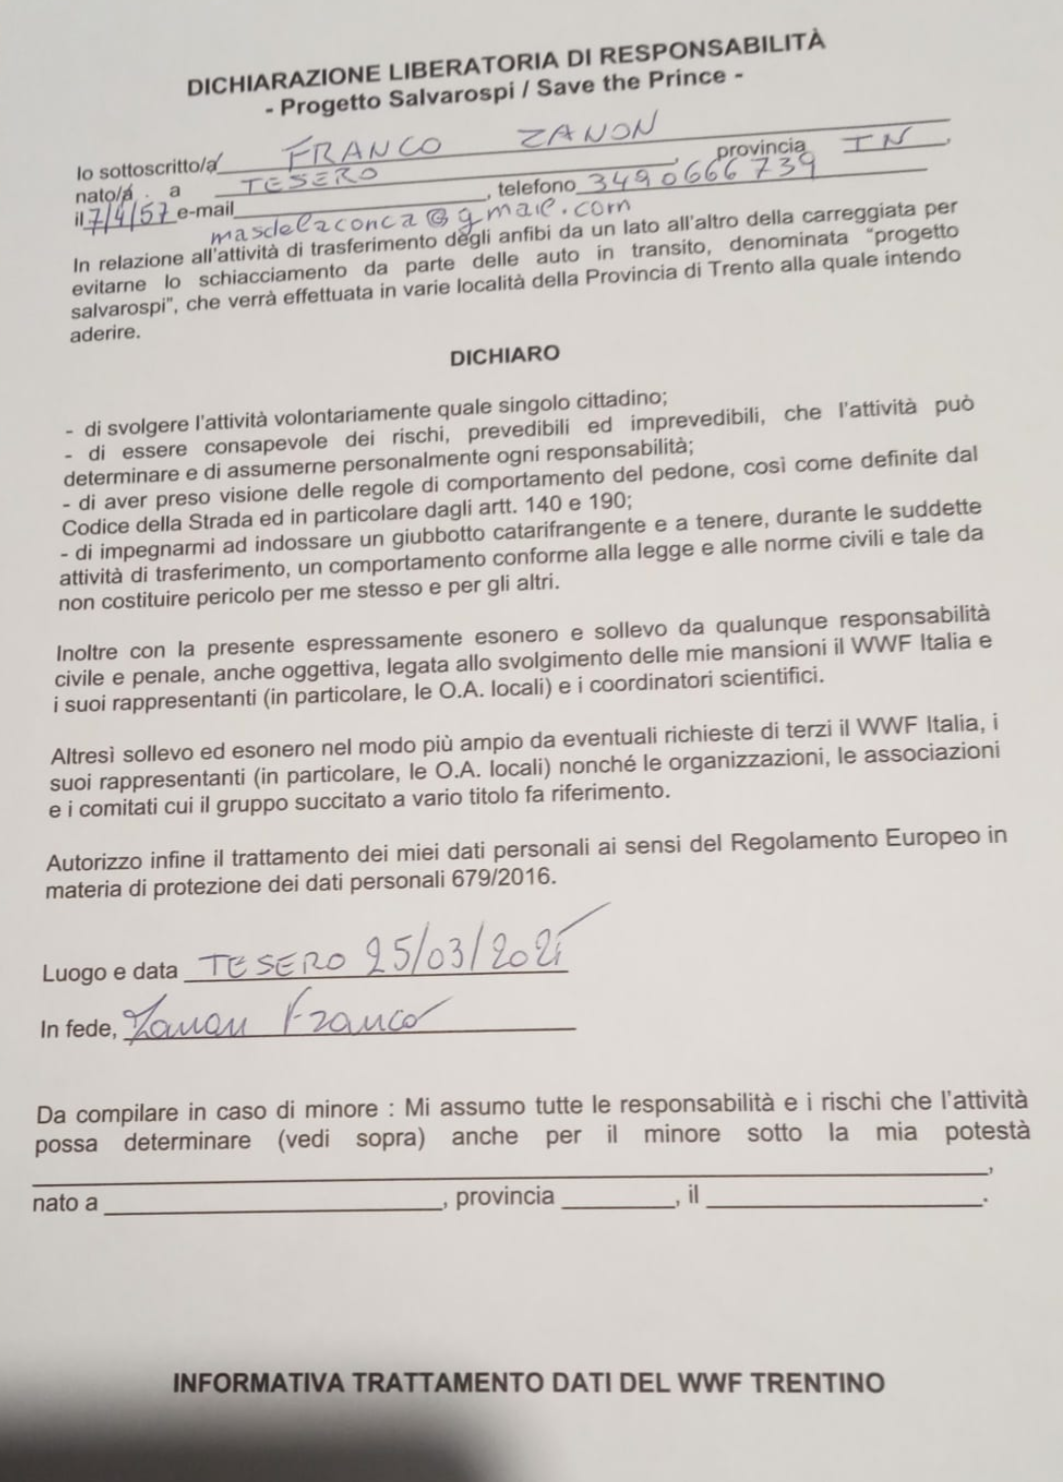 DICHIARAZIONE LIBERATORIA DI RESPONSABILITÀ
- Progetto Salvarospi / Save the Prince -
Io sottoscritto/a FRANCO ZANON
nato/a a TESERO, provincia IN,
il 7/4/57 e-mail masdelaconca@gmail.com, telefono 3490666739
In relazione all'attività di trasferimento degli anfibi da un lato all'altro della carreggiata per
evitarne lo schiacciamento da parte delle auto in transito, denominata "progetto
salvarospi", che verrà effettuata in varie località della Provincia di Trento alla quale intendo
aderire.
DICHIARO
- di svolgere l'attività volontariamente quale singolo cittadino;
- di essere consapevole dei rischi, prevedibili ed imprevedibili, che l'attività può
determinare e di assumerne personalmente ogni responsabilità;
- di aver preso visione delle regole di comportamento del pedone, così come definite dal
Codice della Strada ed in particolare dagli artt. 140 e 190;
- di impegnarmi ad indossare un giubbotto catarifrangente e a tenere, durante le suddette
attività di trasferimento, un comportamento conforme alla legge e alle norme civili e tale da
non costituire pericolo per me stesso e per gli altri.
Inoltre con la presente espressamente esonero e sollevo da qualunque responsabilità
civile e penale, anche oggettiva, legata allo svolgimento delle mie mansioni il WWF Italia e
i suoi rappresentanti (in particolare, le O.A. locali) e i coordinatori scientifici.
Altresì sollevo ed esonero nel modo più ampio da eventuali richieste di terzi il WWF Italia, i
suoi rappresentanti (in particolare, le O.A. locali) nonché le organizzazioni, le associazioni
e i comitati cui il gruppo succitato a vario titolo fa riferimento.
Autorizzo infine il trattamento dei miei dati personali ai sensi del Regolamento Europeo in
materia di protezione dei dati personali 679/2016.
Luogo e data TESERO 25/03/2025
In fede, Zanon Franco
Da compilare in caso di minore : Mi assumo tutte le responsabilità e i rischi che l'attività
possa determinare (vedi sopra) anche per il minore sotto la mia potestà
,
nato a , provincia , il .
INFORMATIVA TRATTAMENTO DATI DEL WWF TRENTINO